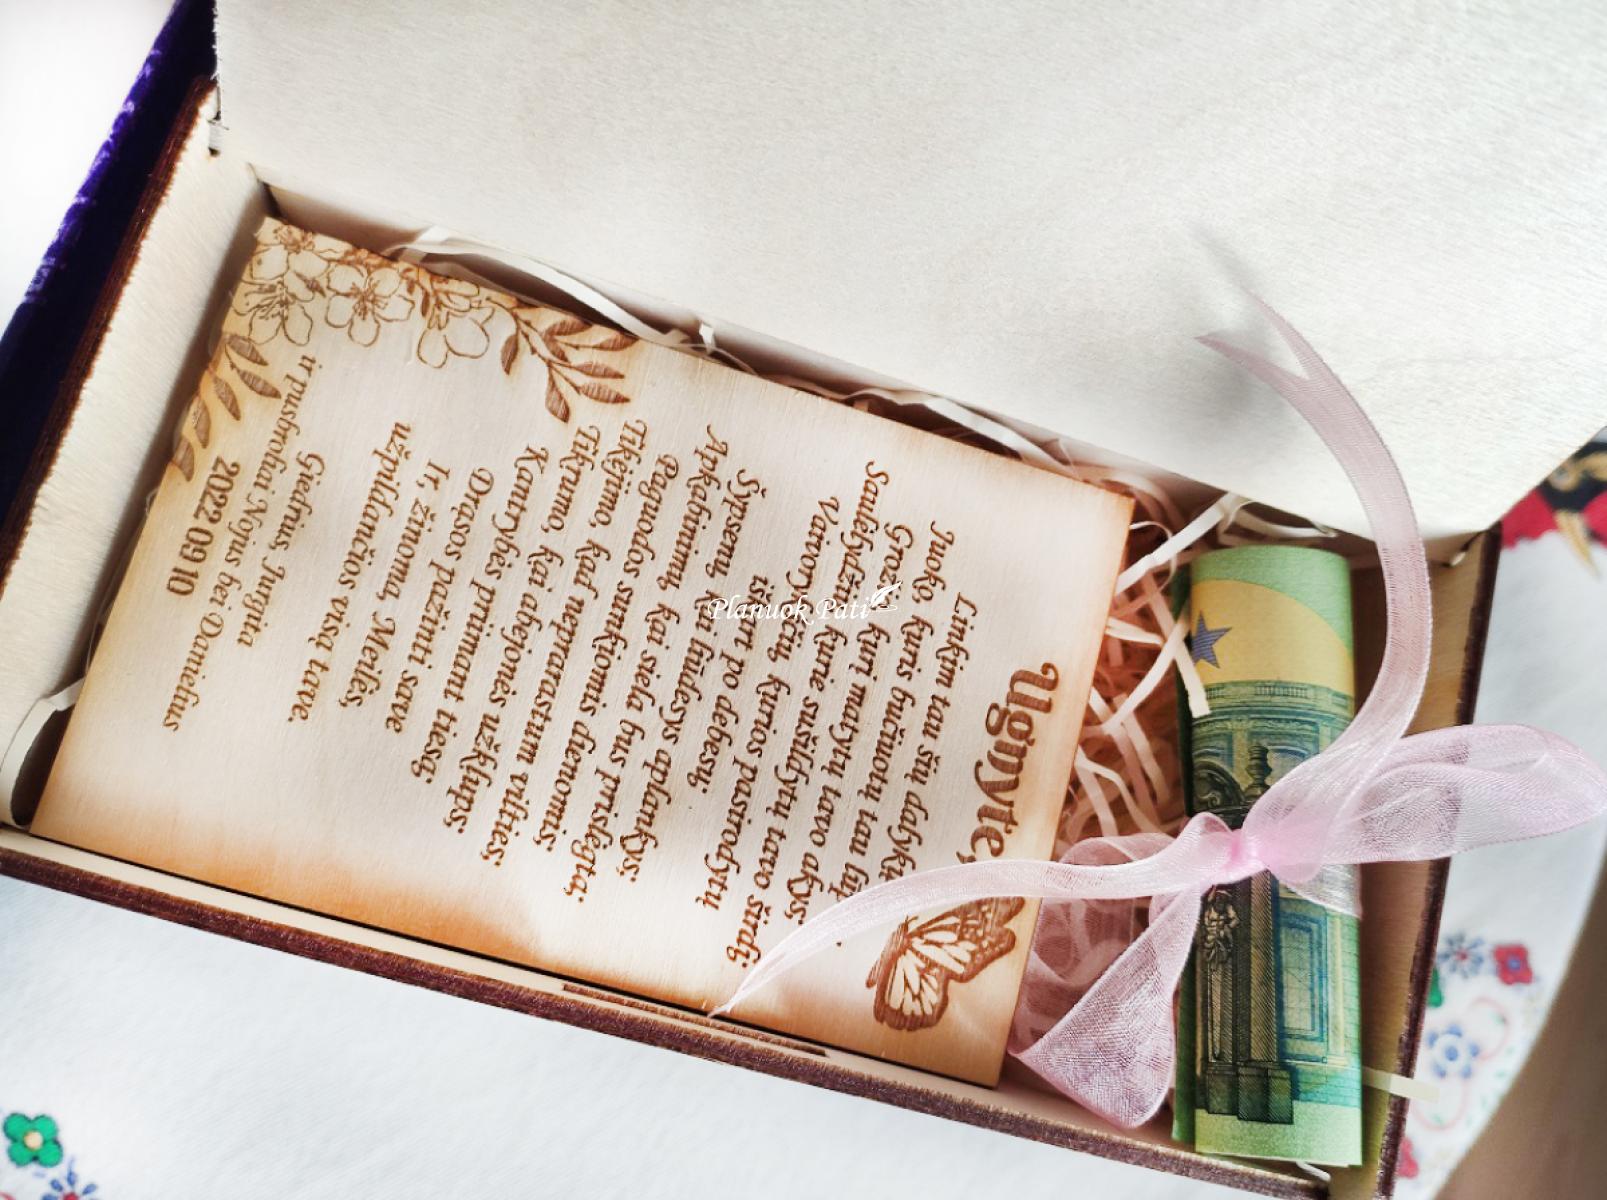 Ugnyte,
Linkim tau šių dalykų
Juoko, kuris bučiuotų tau lūp
Grožio, kurį matytų tavo akys;
Saulėlydžių, kurie sušildytų tavo širdį;
Vaivorykščių, kurios pasirodytų
išsyk po debesų;
Šypsenų, kai liūdesys aplankys;
Apkabinimų, kai siela bus prislėgta;
Paguodos sunkiomis dienomis;
Tikėjimo, kad neprarastum vilties;
Tikrumo, kai abejonės užklups;
Kantrybės priimant tiesą;
Drąsos pažinti save
Ir, žinoma, Meilės,
užpildančios visą tave.
Giedrius, Jurgita
ir pusbroliai Nojus bei Danielius
2022 09 10
Planuok Pati